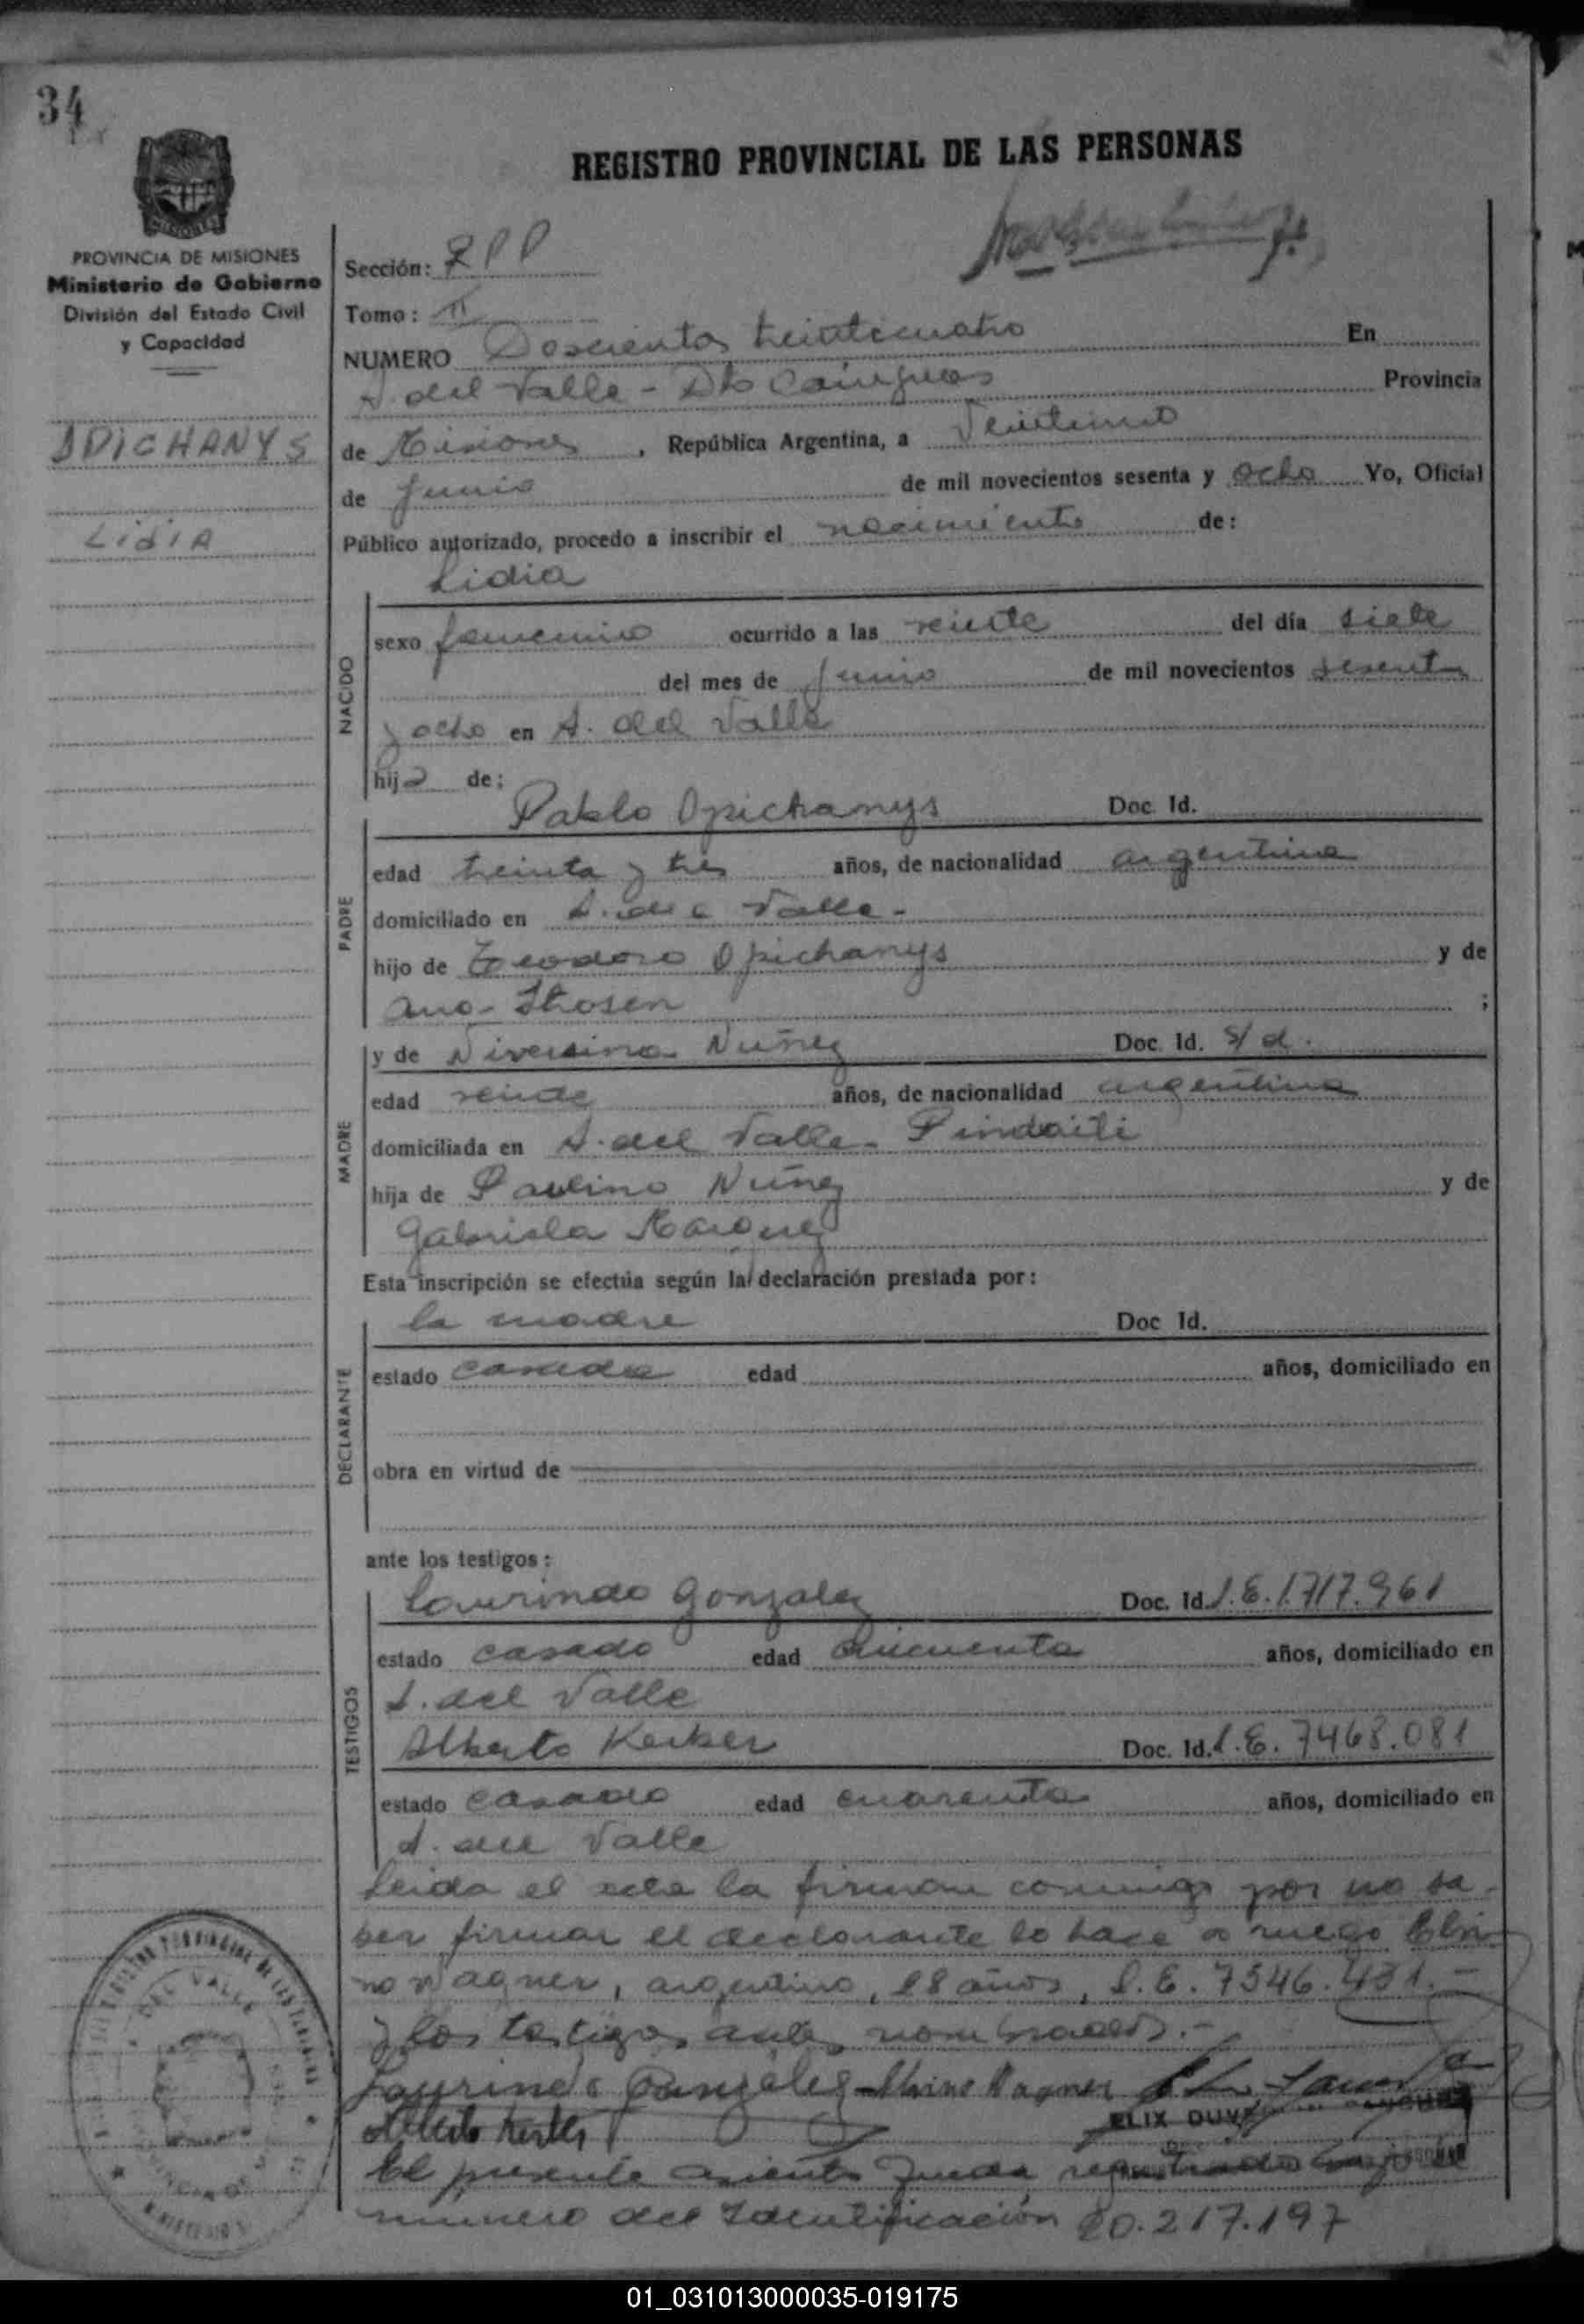 34
REGISTRO PROVINCIAL DE LAS PERSONAS
MISIONES
PROVINCIA DE MISIONES
Ministerio de Gobierno
División del Estado Civil
y Capacidad
OPICHANYS
LidiA
Sección:
Tomo: II
NUMERO Doscientos treinticuatro En
A. del Valle - Dto Cainguas Provincia
de Misiones, República Argentina, a Veintiuno
de junio de mil novecientos sesenta y ocho Yo, Oficial
Público autorizado, procedo a inscribir el nacimiento de:
Lidia
NACIDO
sexo femenino ocurrido a las veinte del día siete
del mes de junio de mil novecientos sesenta
y ocho en A. del Valle
hija de;
PADRE
Pablo Opichanys Doc. Id.
edad treinta y tres años, de nacionalidad argentina
domiciliado en A. del Valle-
hijo de Teodoro Opichanys y de
Ana ;
MADRE
y de Niversina Nuñez Doc. Id. s/d.
edad veinte años, de nacionalidad argentina
domiciliada en A. del Valle- Pindaiti
hija de Paulino Nuñez y de
Gabriela
Esta inscripción se efectúa según la declaración prestada por:
DECLARANTE
la madre Doc Id.
estado casada edad años, domiciliado en
obra en virtud de
ante los testigos:
TESTIGOS
Laurindo Gonzalez Doc. Id. L.E. 1.717.961
estado casado edad cincuenta años, domiciliado en
A. del Valle
Alberto Kerber Doc. Id. L.E. 7468.081
estado casado edad cuarenta años, domiciliado en
A. del Valle
Leida el acta la firman conmigo por no sa-
ber firmar el declarante lo hace a ruego Albi
no Wagner, argentino, años, L.E. 7546.431.-
y los testigos antes nombrados.-
Laurindo Gonzalez Albino Wagner
Alberto Kerber
El presente asiento queda registrado bajo el
número de Identificación 20.217.197
01_031013000035-019175